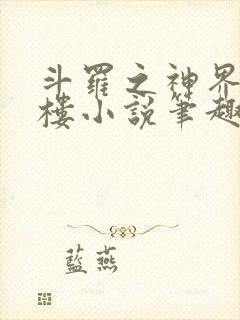 斗羅之神界
樓小說筆趣
藍燕